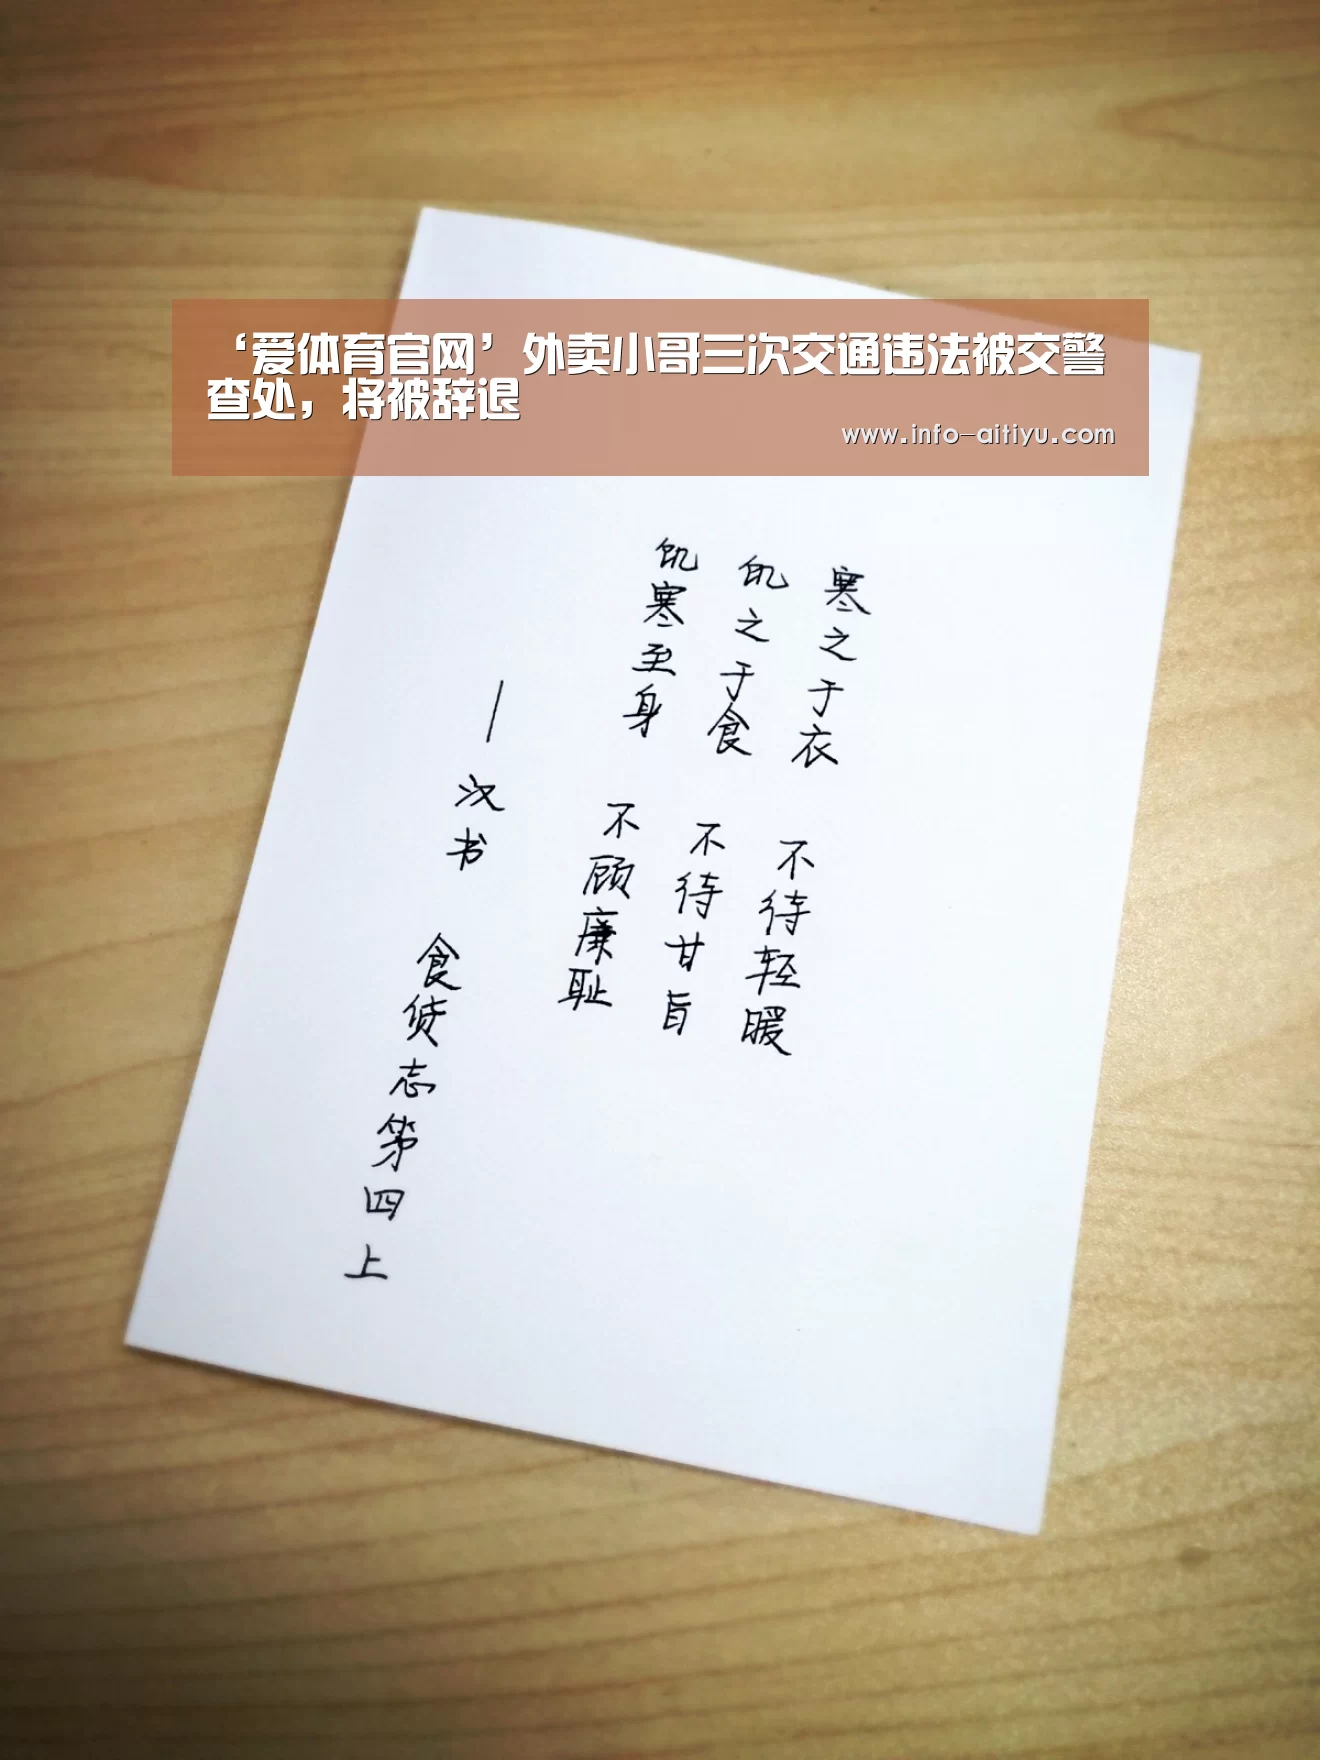 ‘爱体育官网’外卖小哥三次交通违法被交警
查处，将被辞退
www.info-aitiyu.com
寒之于衣 不待轻暖
饥之于食 不待甘旨
饥寒至身 不顾廉耻
—汉书 食货志第四上